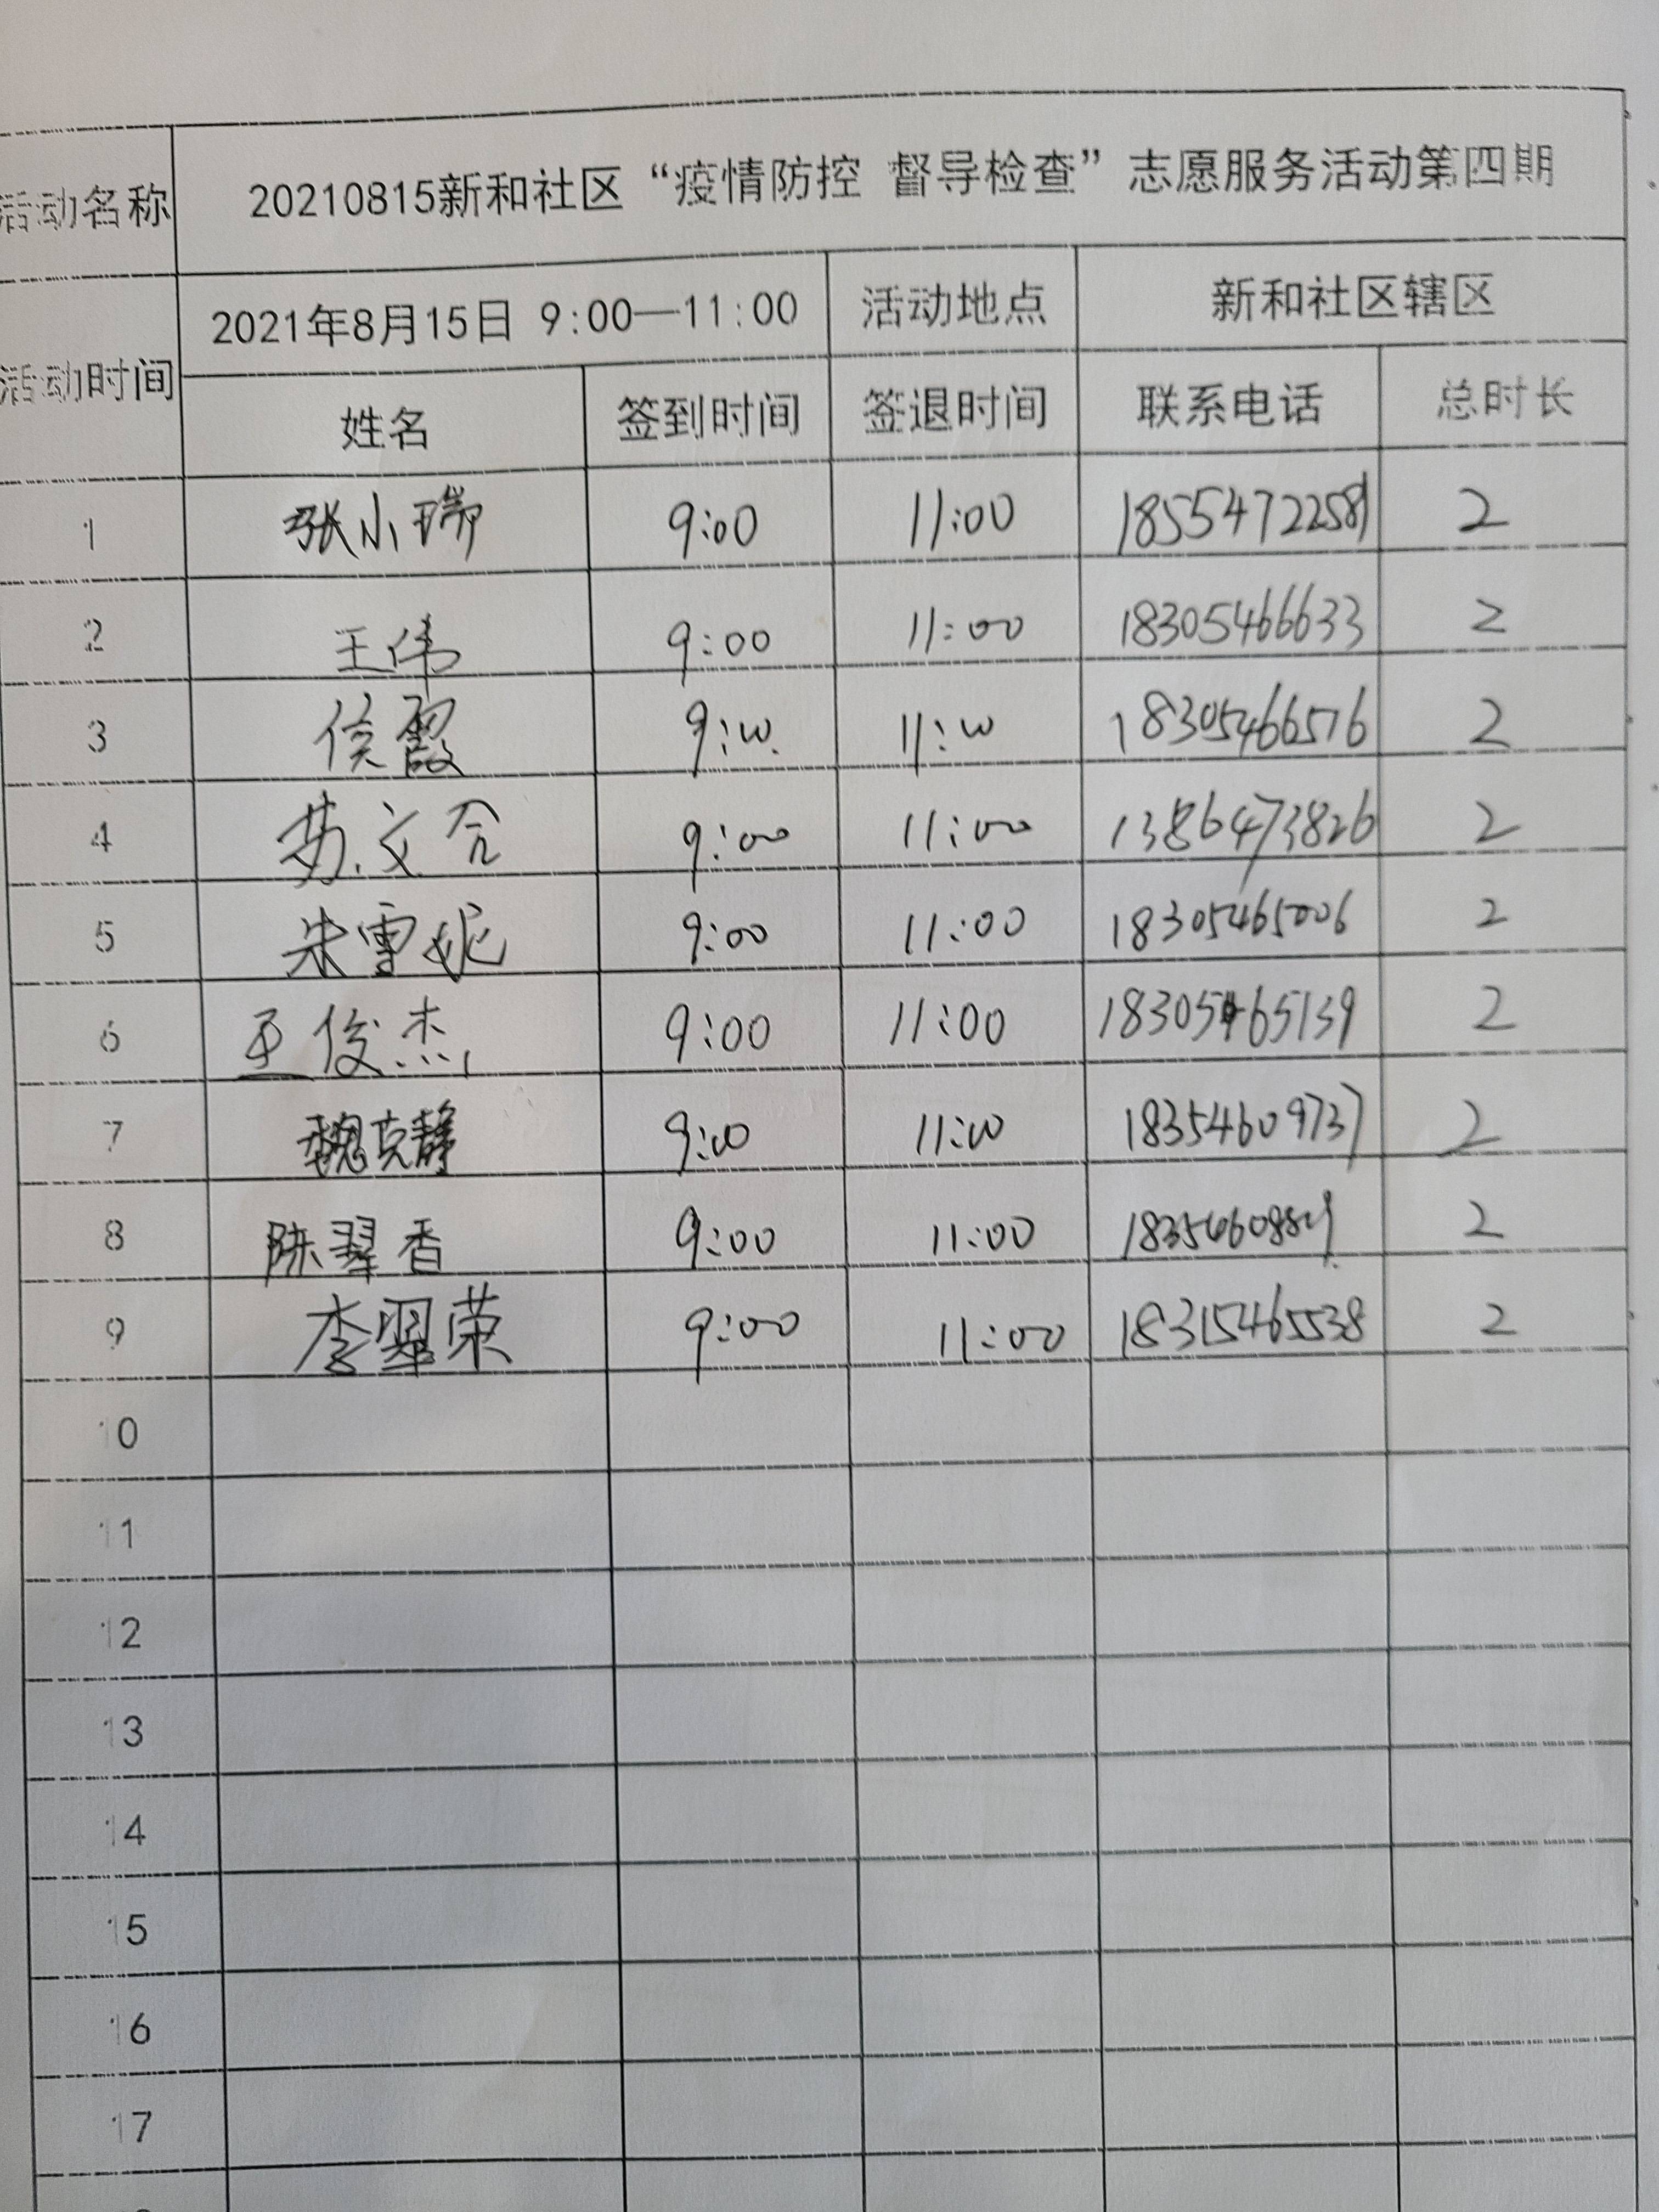 活动名称 20210815新和社区“疫情防控 督导检查”志愿服务活动第四期
活动时间 2021年8月15日 9:00—11:00 活动地点 新和社区辖区
姓名 签到时间 签退时间 联系电话 总时长
1 张小瑞 9:00 11:00 18554722589 2
2 王伟 9:00 11:00 18305466633 2
3 侯霞 9:00 11:00 18305466576 2
4 文合 9:00 11:00 13864773826 2
5 朱雪妮 9:00 11:00 18305465006 2
6 王俊杰 9:00 11:00 18305465139 2
7 魏克静 9:00 11:00 18354609737 2
8 陈翠香 9:00 11:00 2
9 李翠荣 9:00 11:00 18315465538 2
10
11
12
13
14
15
16
17